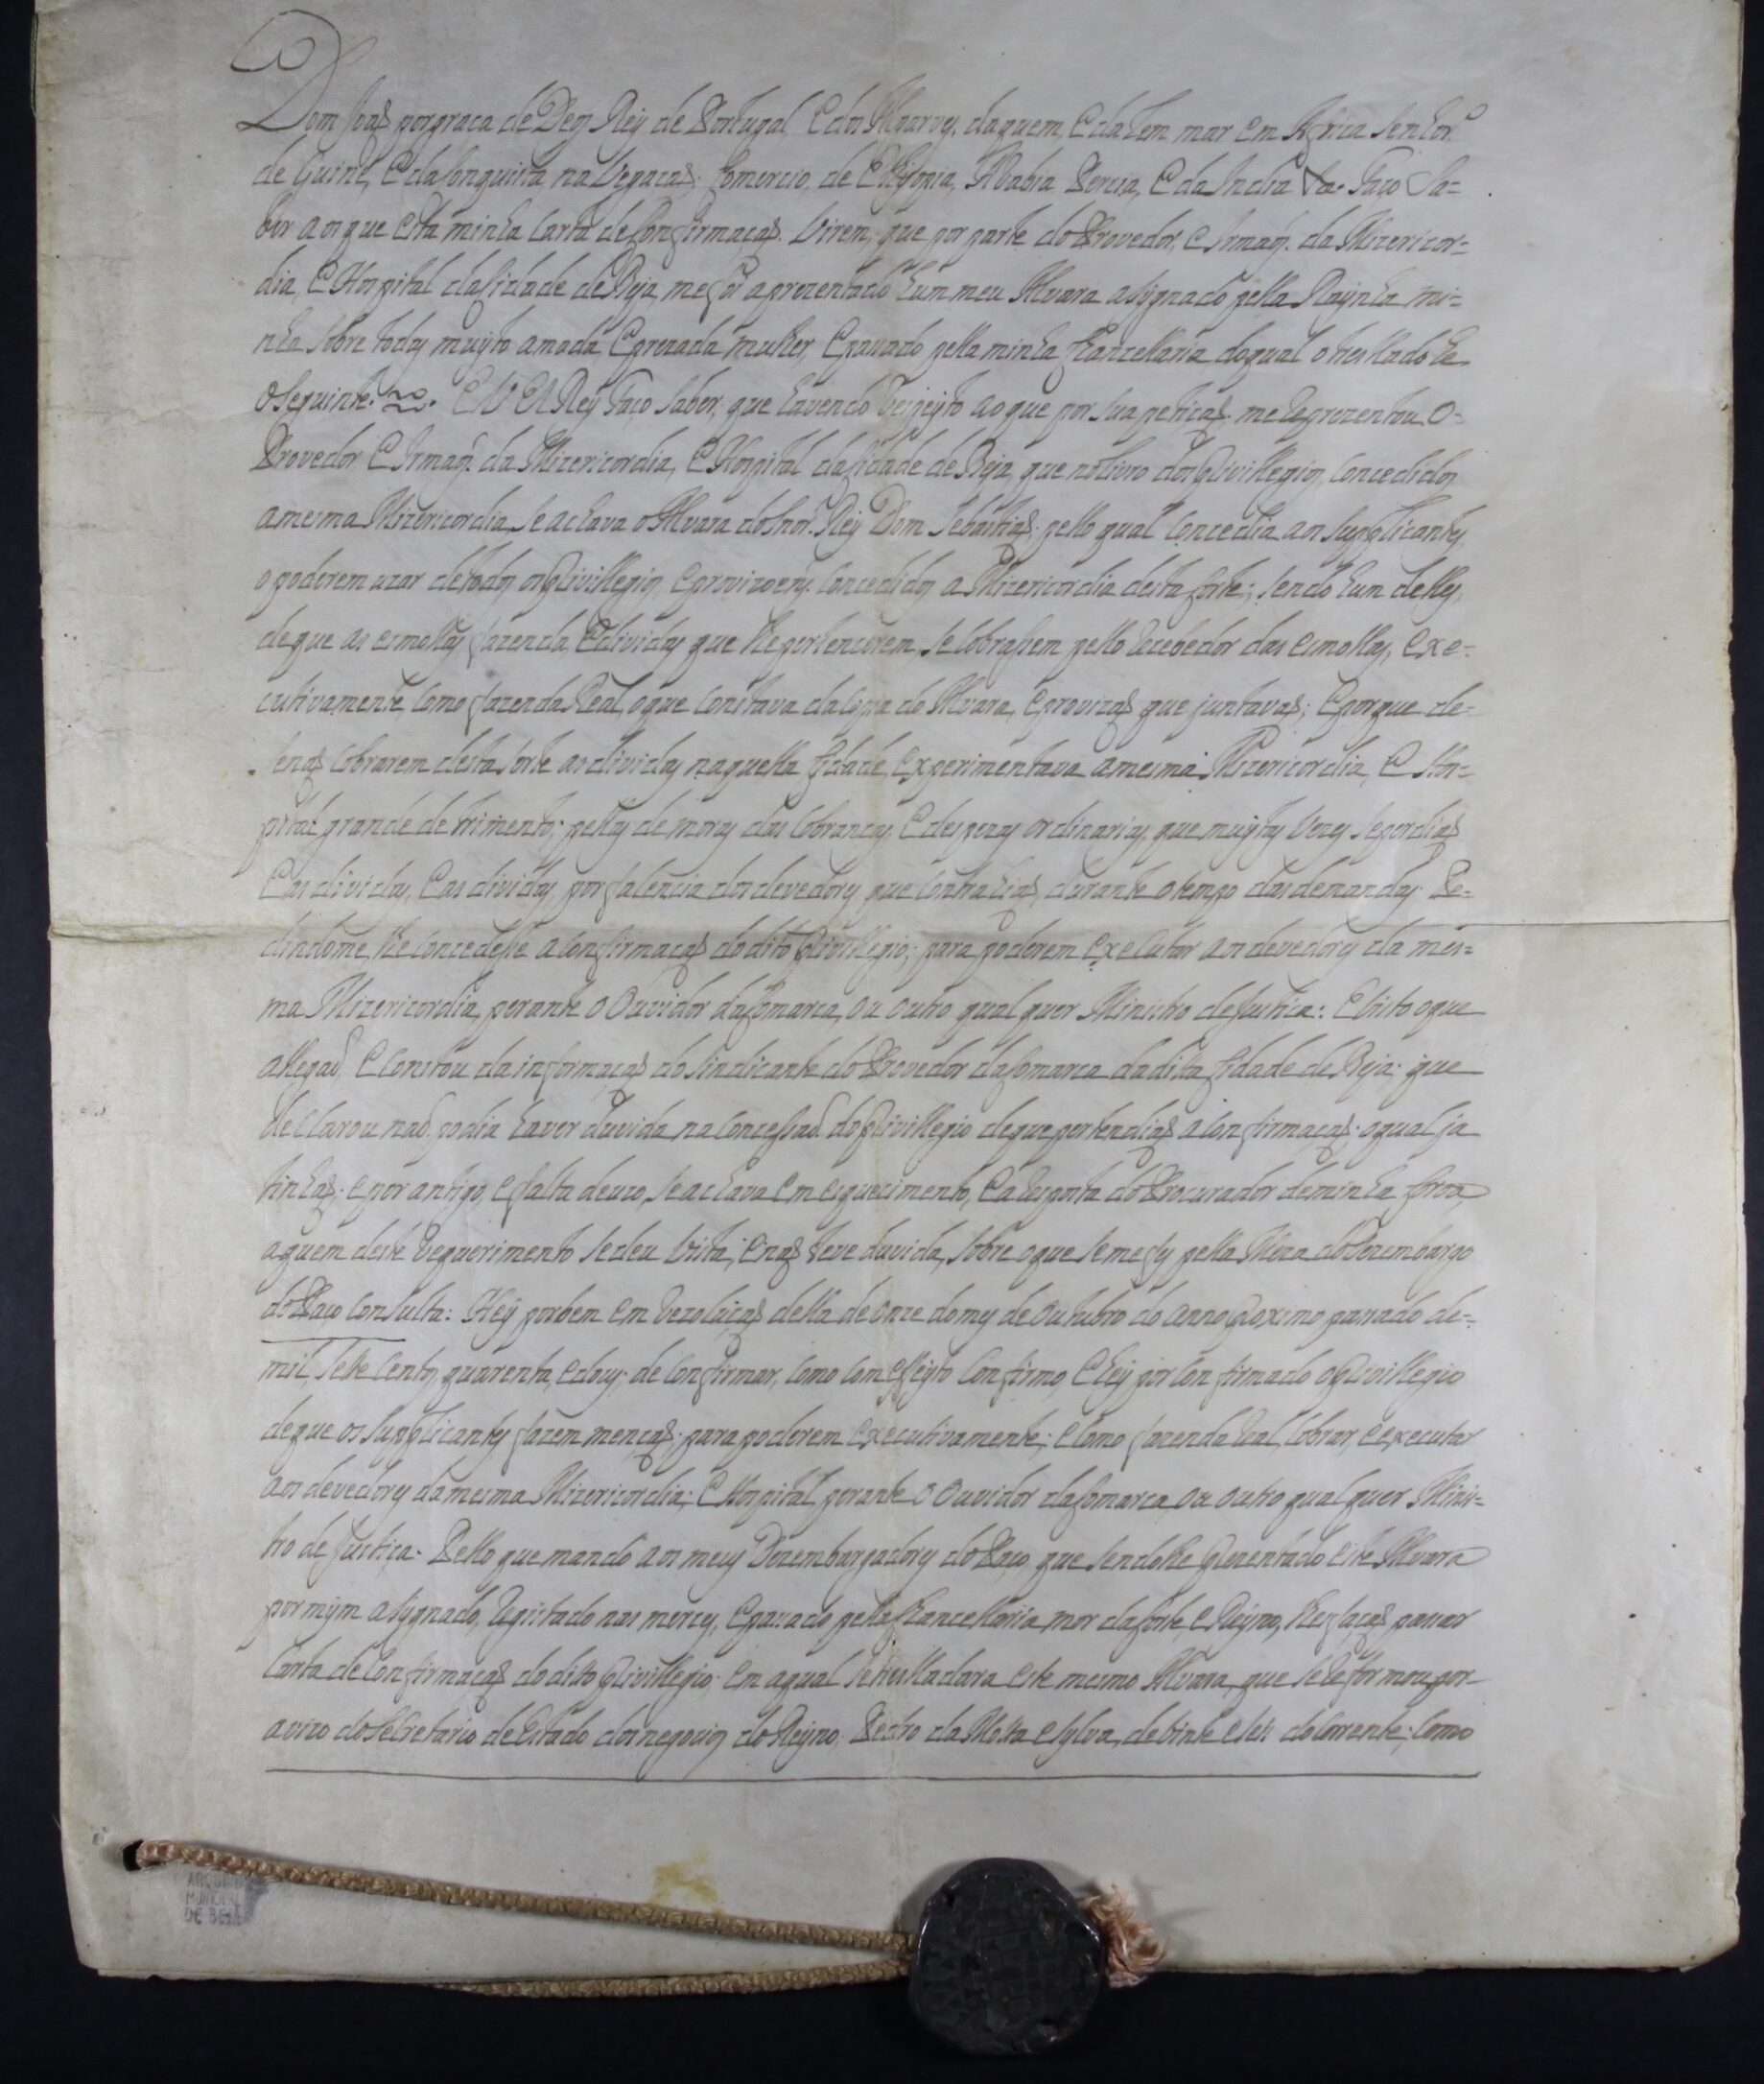 Dom Joaõ por graca de Deos Rey de Portugal, e dos Algarves, daquem, e dalem mar em Africa Senhor
de Guine, e da Conquista navegacaõ, Comercio, de Ethyopia, Arabia Percia, e da India &a. Faço Sa=
ber aos que esta minha Carta de Confirmaçaõ virem, que por parte do Provedor, e Irmaõs da Mizericor=
dia, e Hospital da Cidade de Beja, me foi aprezentado hum meu Alvara asignado pella Raynha mi=
nha sobre todas muyto amada e prezada mulher, e passado pella minha Chancellaria do qual o tresllado he
o seguinte. EU El Rey Faço saber, que havendo respeyto ao que por sua petiçaõ me reprezentou o=
Provedor e Irmaõs da Mizericordia, e Hospital da Cidade de Beja, que no livro dos Privillegios, concedidos
a mesma Mizericordia, se achava o Alvara do Snor. Rey Dom Sebastiaõ, pello qual concedia aos Supplicantes
o poderem uzar de todos os Privillegios, e provizoens concedidos a Mizericordia desta Corte; sendo hum delles,
de que as esmollas, fazenda e dividas que lhe pertencerem se cobrassem pello recebedor das esmollas, exe=
cutivamente, como fazenda Real, o que constava da copia do Alvara, e provizaõ que juntavaõ; e porque de=
se naõ cobrarem desta sorte as dividas naquella Cidade, experimentava a mesma Mizericordia, e Hos=
pital grande detrimento; pellas demoras das cobranças, e despezas ordinarias, que muytas vezes se perdiaõ
e as dividas, e as dividas, por falencia dos devedores que contrahiaõ, durante o tempo das demandas. Pe=
dindome, lhe concedesse a confirmaçaõ do dito Privillegio; para poderem executar aos devedores da mes=
ma Mizericordia, perante o Ouvidor da Comarca, ou outro qual quer Ministro de Justica: E visto o que
allegaõ, e constou da informaçaõ do sindicante do Provedor da Comarca da dita Cidade de Beja; que
declarou naõ podia haver duvida na concessaõ do Privillegio de que pertendiaõ a confirmaçaõ; o qual ja
tinhaõ; e por antigo, e falta de uzo, se achava em esquecimento, e a resposta do Procurador de minha Coroa,
a quem deste requerimento se deu vista, e naõ teve duvida, sobre o que se me fes pella Meza do Dezembargo
do Paço consulta: Hey por bem em rezoluçaõ della de onze do mes de Outubro do anno proximo passado de=
mil, sete centos, quarenta, e dous; de confirmar, como com effeyto confirmo, e hey por confirmado o Privillegio
de que os Supplicantes fazem mençaõ; para poderem executivamente; e como fazenda Real, cobrar, e executar
aos devedores da mesma Mizericordia; e Hospital perante o Ouvidor da Comarca, ou outro qual quer Minis=
tro de Justiça. Pello que mando aos meus Dezembargadores do Paço, que sendolhe prezentado este Alvara
por mym asignado, registado nas merces, e passado pella Chancellaria mor da Corte, e Reyno, lhes façaõ passar
Carta de confirmaçaõ do dito Privillegio; em a qual se treslladara este mesmo Alvara, que se reformou por=
avizo do Secretario de Estado dos negocios do Reyno. Pedro da Motta e Sylva, de vinte e seis do corrente; como
ARQUIVO
MUNICIPAL
DE BEJA